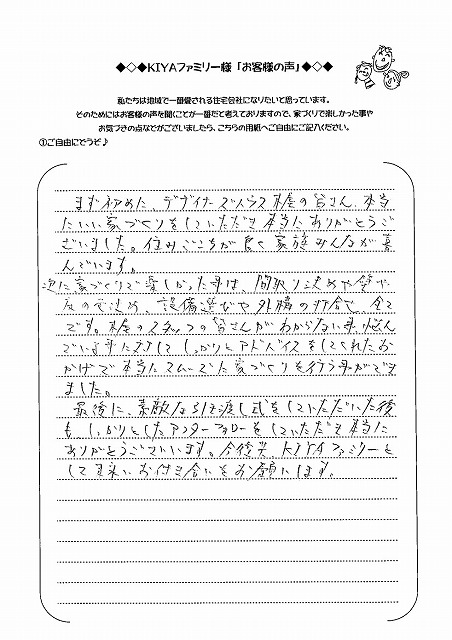 ◆◇◆KIYAファミリー様「お客様の声」◆◇◆
私たちは地域で一番愛される住宅会社になりたいと思っています。
そのためにはお客様の声を聞くことが一番だと考えておりますので、家づくりで楽しかった事や
お気づきの点などがございましたら、こちらの用紙へご自由にご記入ください。
①ご自由にどうぞ♪
まず初めに、デザイナーズハウス木屋の皆さん、本当
にいい家づくりをしていただき本当にありがとうご
ざいました。住みごこちが良く家族みんなが喜
んでいます。
次に家づくりで楽しかった事は、間取り決めや
決め、設備選びや外構の打合せ、全て
です。木屋のスタッフの皆さんがわからない事、悩ん
でいます事に対して しっかりとアドバイスをしてくれたお
かげで本当にスムーズに家づくりを行う事ができ
ました。
最後に、素敵な引き渡し式をしていただいた後
も、しっかりとしたアフターフォローをしていただき本当に
ありがとうございます。今後共、KIYAファミリーと
して末永いお付き合いをお願いします。